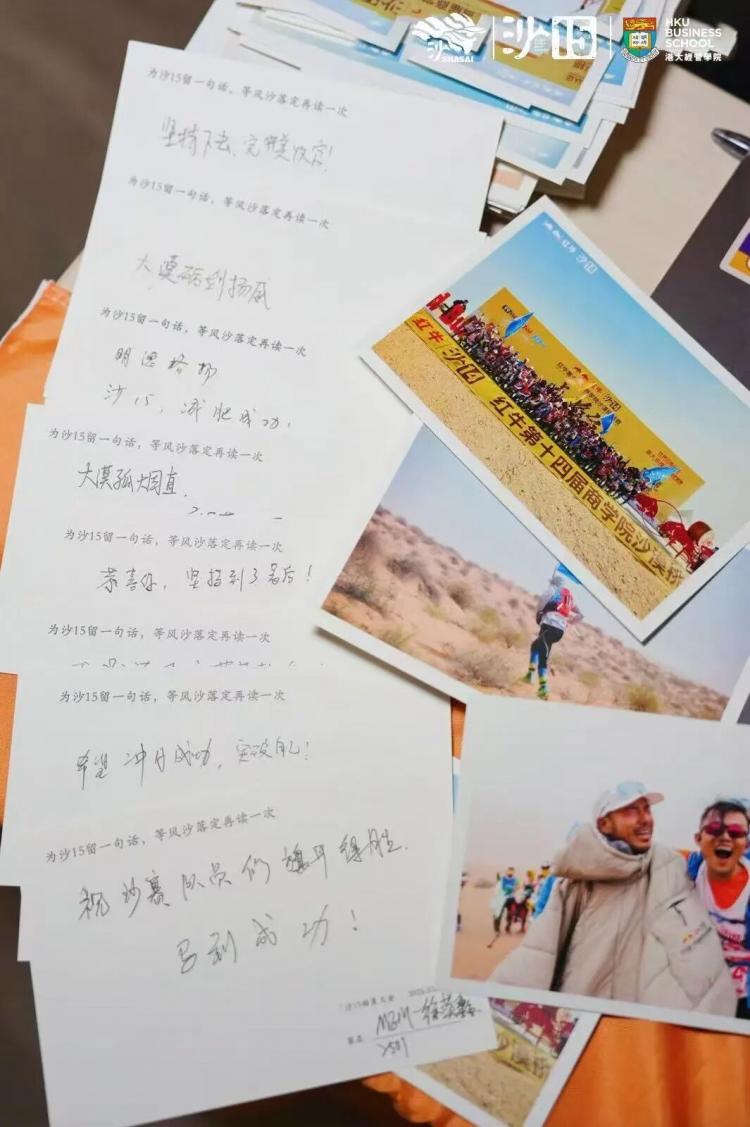 沙 SHASAI
沙15
HKU
BUSINESS
SCHOOL
港大經管學院
为沙15留一句话，等风沙落定再读一次
坚持下去，完美收官！
为沙15留一句话，等风沙落定再读一次
大漠砺剑扬威
为沙15留一句话，等风沙落定再读一次
明德格物
沙15，减肥成功！
为沙15留一句话，等风沙落定再读一次
大漠孤烟直，
为沙15留一句话，等风沙落定再读一次
恭喜你，坚持到了最后！
为沙15留一句话，等风沙落定再读一次
为沙15留一句话，等风沙落定再读一次
希望冲A成功，突破自己！
为沙15留一句话，等风沙落定再读一次
祝沙赛队员们旗开得胜
马到成功！
签名
MGM
沙15
红牛 沙14
红牛第十四届商学院沙漠